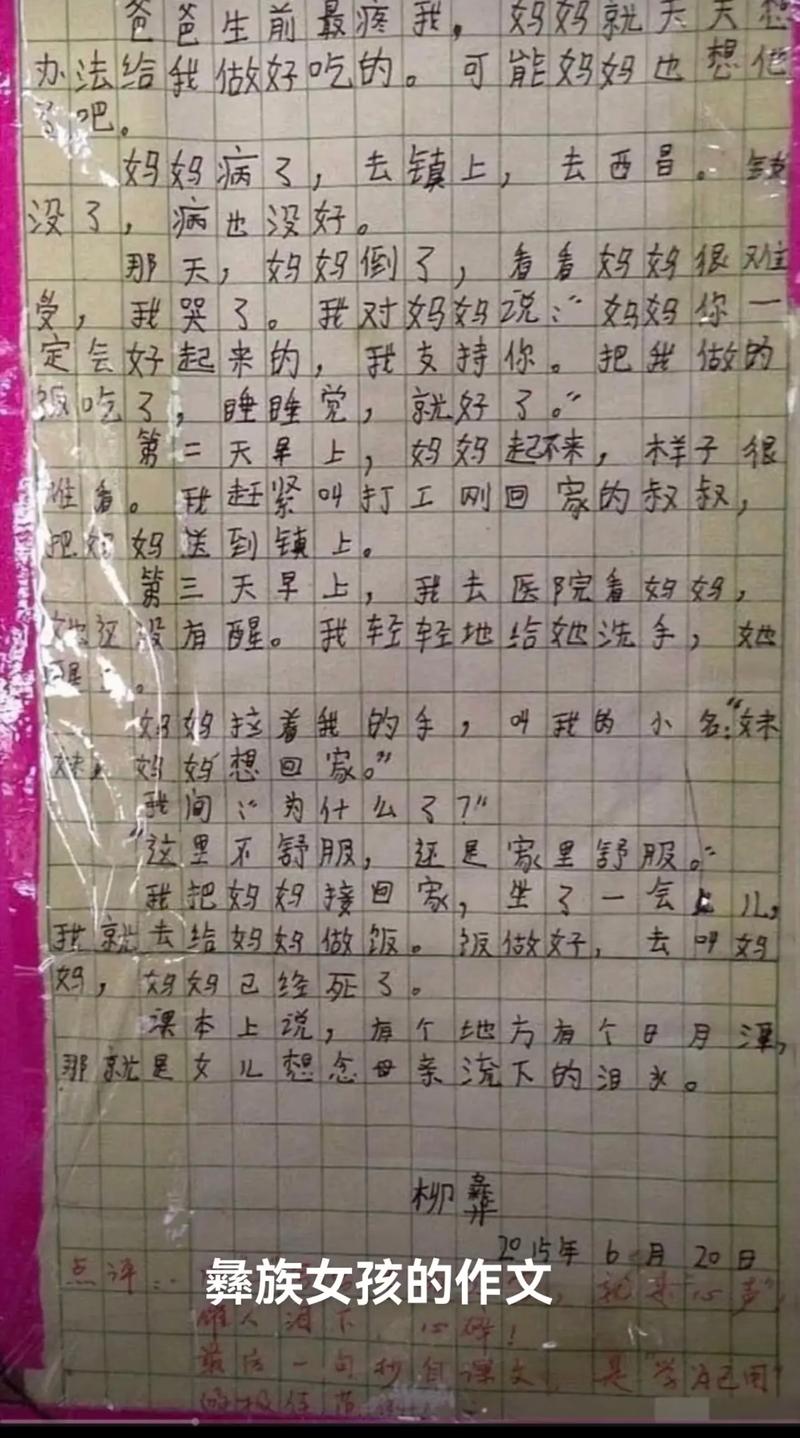 爸爸生前最疼我，妈妈就天天想
办法给我做好吃的。可能妈妈也想他
了吧。
妈妈病了，去镇上，去西昌。钱
没了，病也没好。
那天，妈妈倒了，看看妈妈很难
受，我哭了。我对妈妈说：“妈妈你一
定会好起来的，我支持你。把我做的
饭吃了，睡睡觉，就好了。”
第二天早上，妈妈起不来，样子很
难看。我赶紧叫打工刚回家的叔叔，
把妈妈送到镇上。
第三天早上，我去医院看妈妈，
她还没有醒。我轻轻地给她洗手，她
醒了。
妈妈拉着我的手，叫我的小名：“妹
妹，妈妈想回家。”
我问：“为什么了？”
“这里不舒服，还是家里舒服。”
我把妈妈接回家，坐了一会儿，
我就去给妈妈做饭。饭做好，去叫妈
妈，妈妈已经死了。
课本上说，有个地方有个日月潭，
那就是女儿想念母亲流下的泪水。
柳彝
2015年6月20日
点评：
彝族女孩的作文
就是“心声”，
催人泪下，心碎！
最后一句抄自课文，是“学为己用”